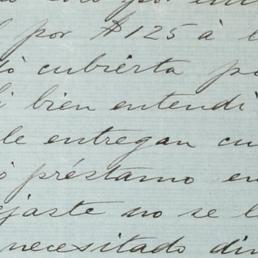 por $125 à l
cubierta po
bien entendi
le entregan cu
préstamo en
ejaste no se l
necesitado din